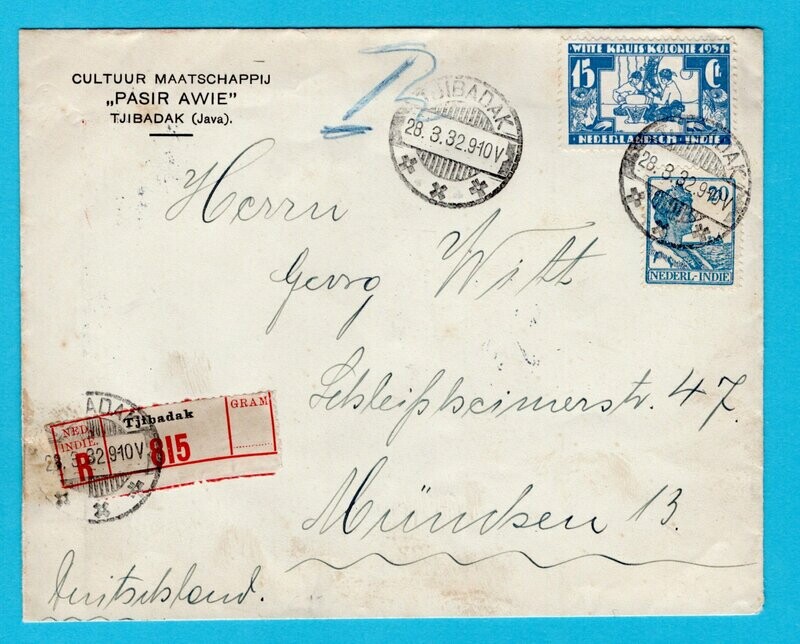 CULTUUR MAATSCHAPPIJ
„PASIR AWIE”
TJIBADAK (Java).
TJIBADAK
28.3.32.9-10V
WITTE KRUIS KOLONIE 1931
15 Ct
NEDERLANDSCH-INDIE
28.3.32.9-10V
20
NEDERL-INDIE
Herrn
Georg Witt
Schleißheimerstr. 47
München 13.
Deutschland.
NED.
INDIE.
Tjibadak
GRAM
R
815
28.3.32.9-10V